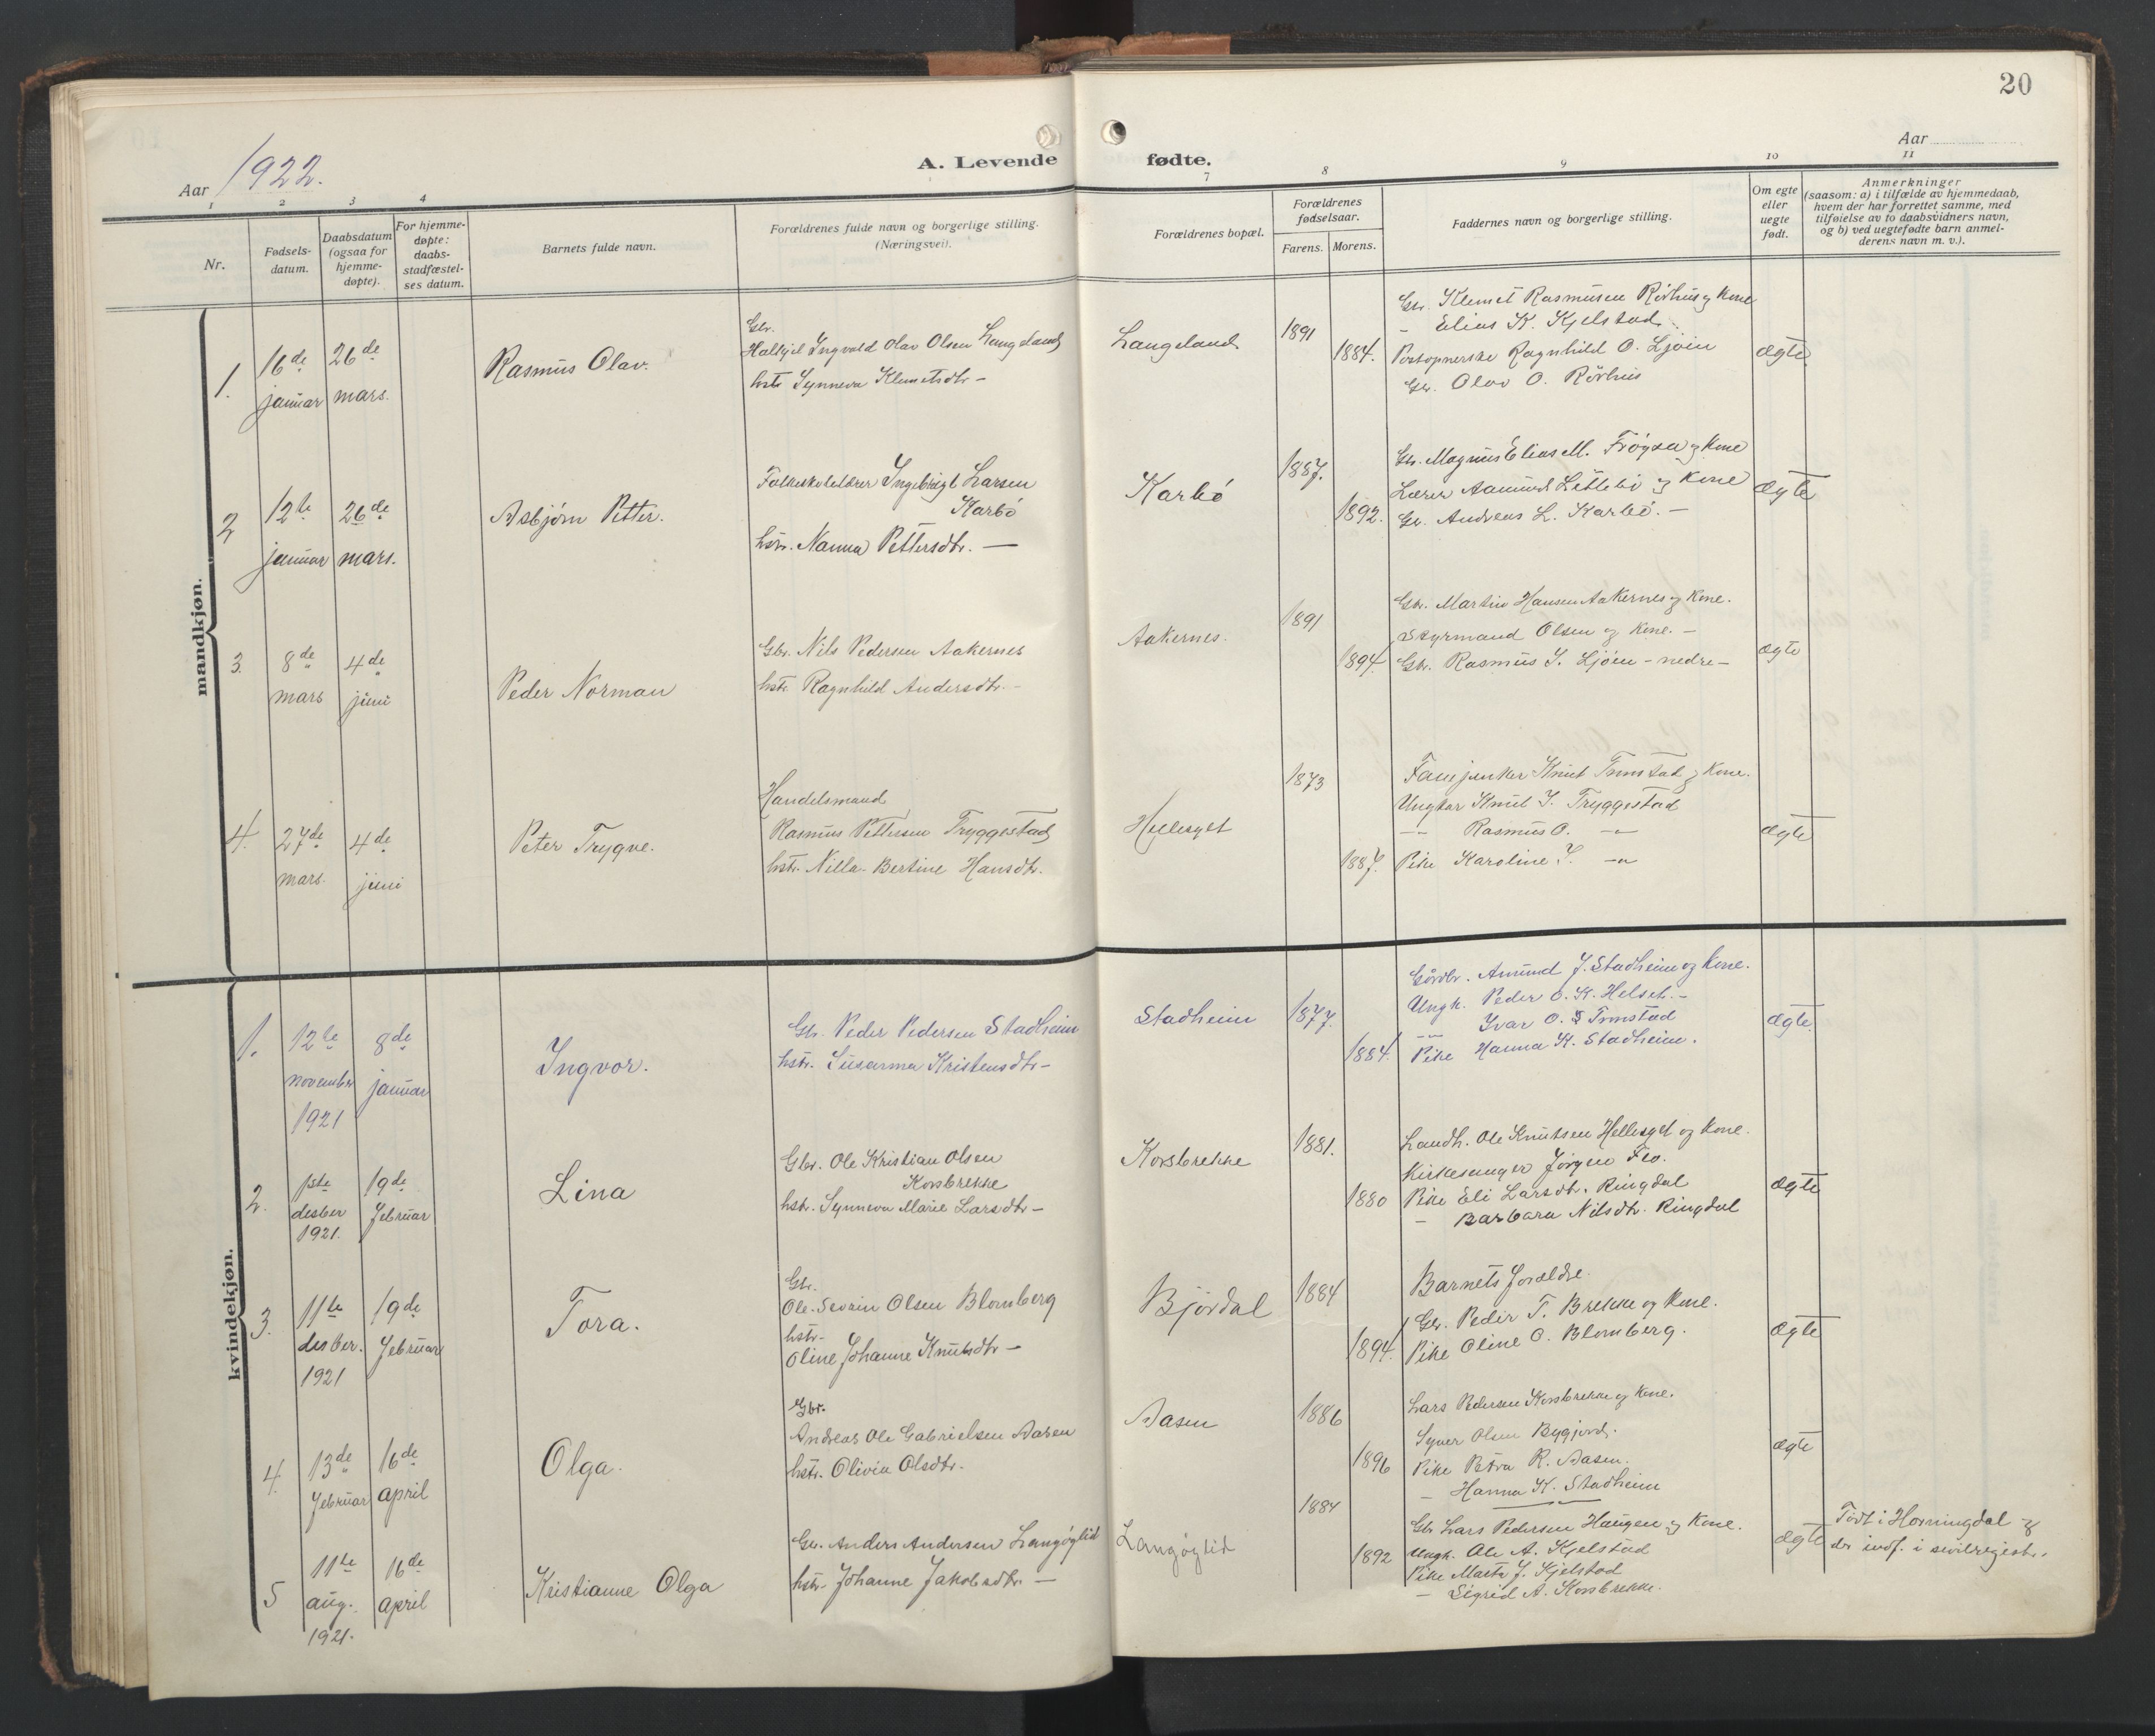 20
Aar 1922.
A. Levende fødte.
Aar
1 2 3 4 7 8 9 10 11
Nr.
Fødsels-
datum.
Daabsdatum
(ogsaa for
hjemme-
døpte).
For hjemme-
døpte:
daabs-
stadfæstel-
ses datum.
Barnets fulde navn.
Forældrenes fulde navn og borgerlige stilling.
(Næringsvei).
Forældrenes bopæl.
Forældrenes
fødselsaar.
Farens. Morens.
Faddernes navn og borgerlige stilling.
Om egte
eller
uegte
født.
Anmerkninger
(saasom: a) i tilfælde av hjemmedaab,
hvem der har forrettet samme, med
tilføielse av to daabsvidners navn,
og b) ved uegtefødte barn anmel-
derens navn m. v.).
mandkjøn.
1.
16de
januar
26de
mars.
Rasmus Olav.
Gbr.
Ingvald Olav Olsen Langeland
hstr Synneva Klemetsdtr -
Langeland
1891
1884.
Gbr. Klemet Rasmusen Rørhus og kone
- Elias K. Kjelstad
Ragnhild O. Ljøin
Gbr. Olav O. Rørhus
ægte
2
12te
januar
26de
mars.
Asbjørn Petter.
Folkeskolelærer Ingebrigt Larsen
Karbø
hstr. Nanna Pettersdtr. -
Karbø
1887.
1892.
Gbr. Magnus Elias M. Frøysa og kone
Lærer Aamund Littlebø og kone
Gbr. Andreas L. Karbø. -
ægte
3.
8de
mars
4de
juni
Peder Norman
Gbr. Nils Pedersen Aakernes
hstr. Ragnhild Andersdtr. -
Aakernes.
1891
1894
Gbr. Martin Hansen Aakernes og kone.
Styrmand Olsen og kone. -
Gbr. Rasmus I. Ljøen - nedre -
ægte
4.
27de
mars.
4de
juni
Peter Trygve.
Handelsmand
Rasmus Pettersen Tryggestad
hstr. Nilla Bertine Hansdtr.
Hellesylt
1873
1887.
Fanejunker Knut Tronstad og kone.
Ungkar Knut I. Tryggestad
-"- Rasmus O. -"-
Pike Karoline I. -"-
ægte
kvindekjøn.
1.
12te
november
1921
8de
januar
Ingvor.
Gbr. Peder Pedersen Stadheim
hstr. Susanna Kristensdtr -
Stadheim
1877.
1884.
Gårdbr. Amund J. Stadheim og kone.
Ungk. Peder O. K. Helset. -
-"- Ivar O. Tronstad
Pike Hanna K. Stadheim.
ægte.
2.
1ste
desber
1921.
19de
februar
Lina
Gbr. Ole Kristian Olsen
Korsbrekke
hstr. Synneva Marie Larsdtr -
Korsbrekke
1881.
1880
Landh. Ole Knutsen Hellesylt og kone.
Kirkesanger Jørgen Flo.
Pike Eli Larsdtr. Ringdal
- Barbara Nilsdtr. Ringdal
ægte
3.
11te
desber.
1921
19de
februar
Tora.
Gbr.
Ole Severin Olsen Blomberg
hstr.
Oline Johanne Knutsdtr -
Bjørdal
1884
1894.
Barnets forældre
Gbr. Peder T. Brekke og kone.
Pike Oline O. Blomberg.
ægte
4.
13de
februar
16de
april
Olga.
Gbr.
Andreas Ole Gabrielsen Aasen
hstr. Olivia Olsdtr.
Aasen
1886
1896
Lars Pedersen Korsbrekke og kone.
Syver Olsen Bygjord.
Pike Petra R. Aasen.
- Hanna K. Stadheim
ægte
5
11te
aug.
1921.
16de
april
Kristianne Olga
Gbr. Anders Andersen Langøylid
hstr. Johanne Jakobsdtr. -
Langøylid
1884
1892
Gbr Lars Pedersen Haugen og kone.
Ungk. Ole A. Kjelstad
Pike Marta J. Kjelstad
- Sigrid A. Korsbrekke.
ægte
Født i Horningdal og
der indf. i sivilregistr.